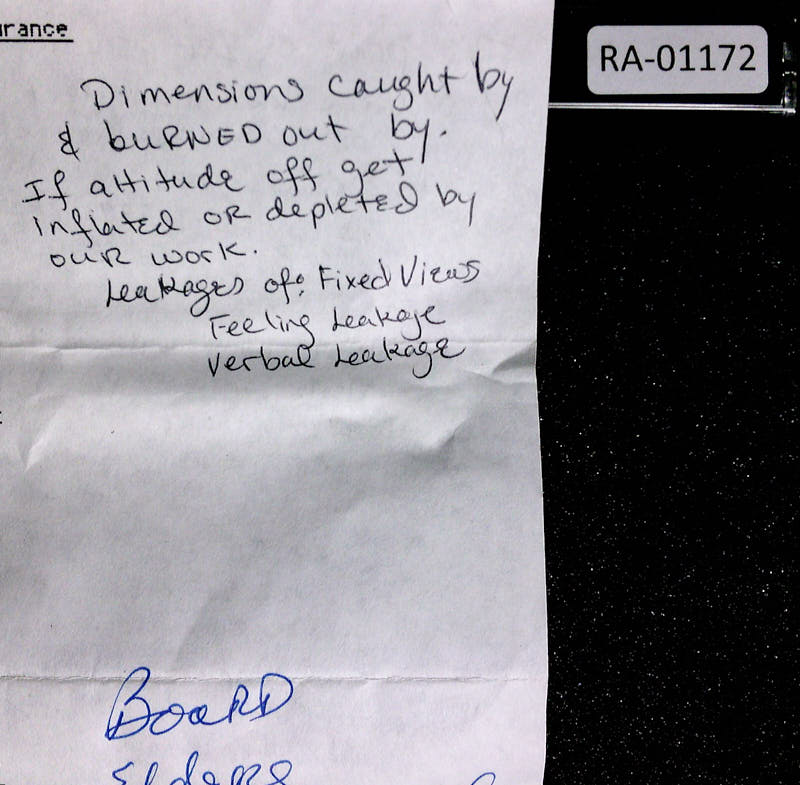 urance
RA-01172
Dimensions caught by
& buRNED out by.
If attitude off get
inflated OR depleted by
ouR work.
Leakages of: Fixed Views
Feeling Leakage
Verbal Leakage
BoaRD
Elders